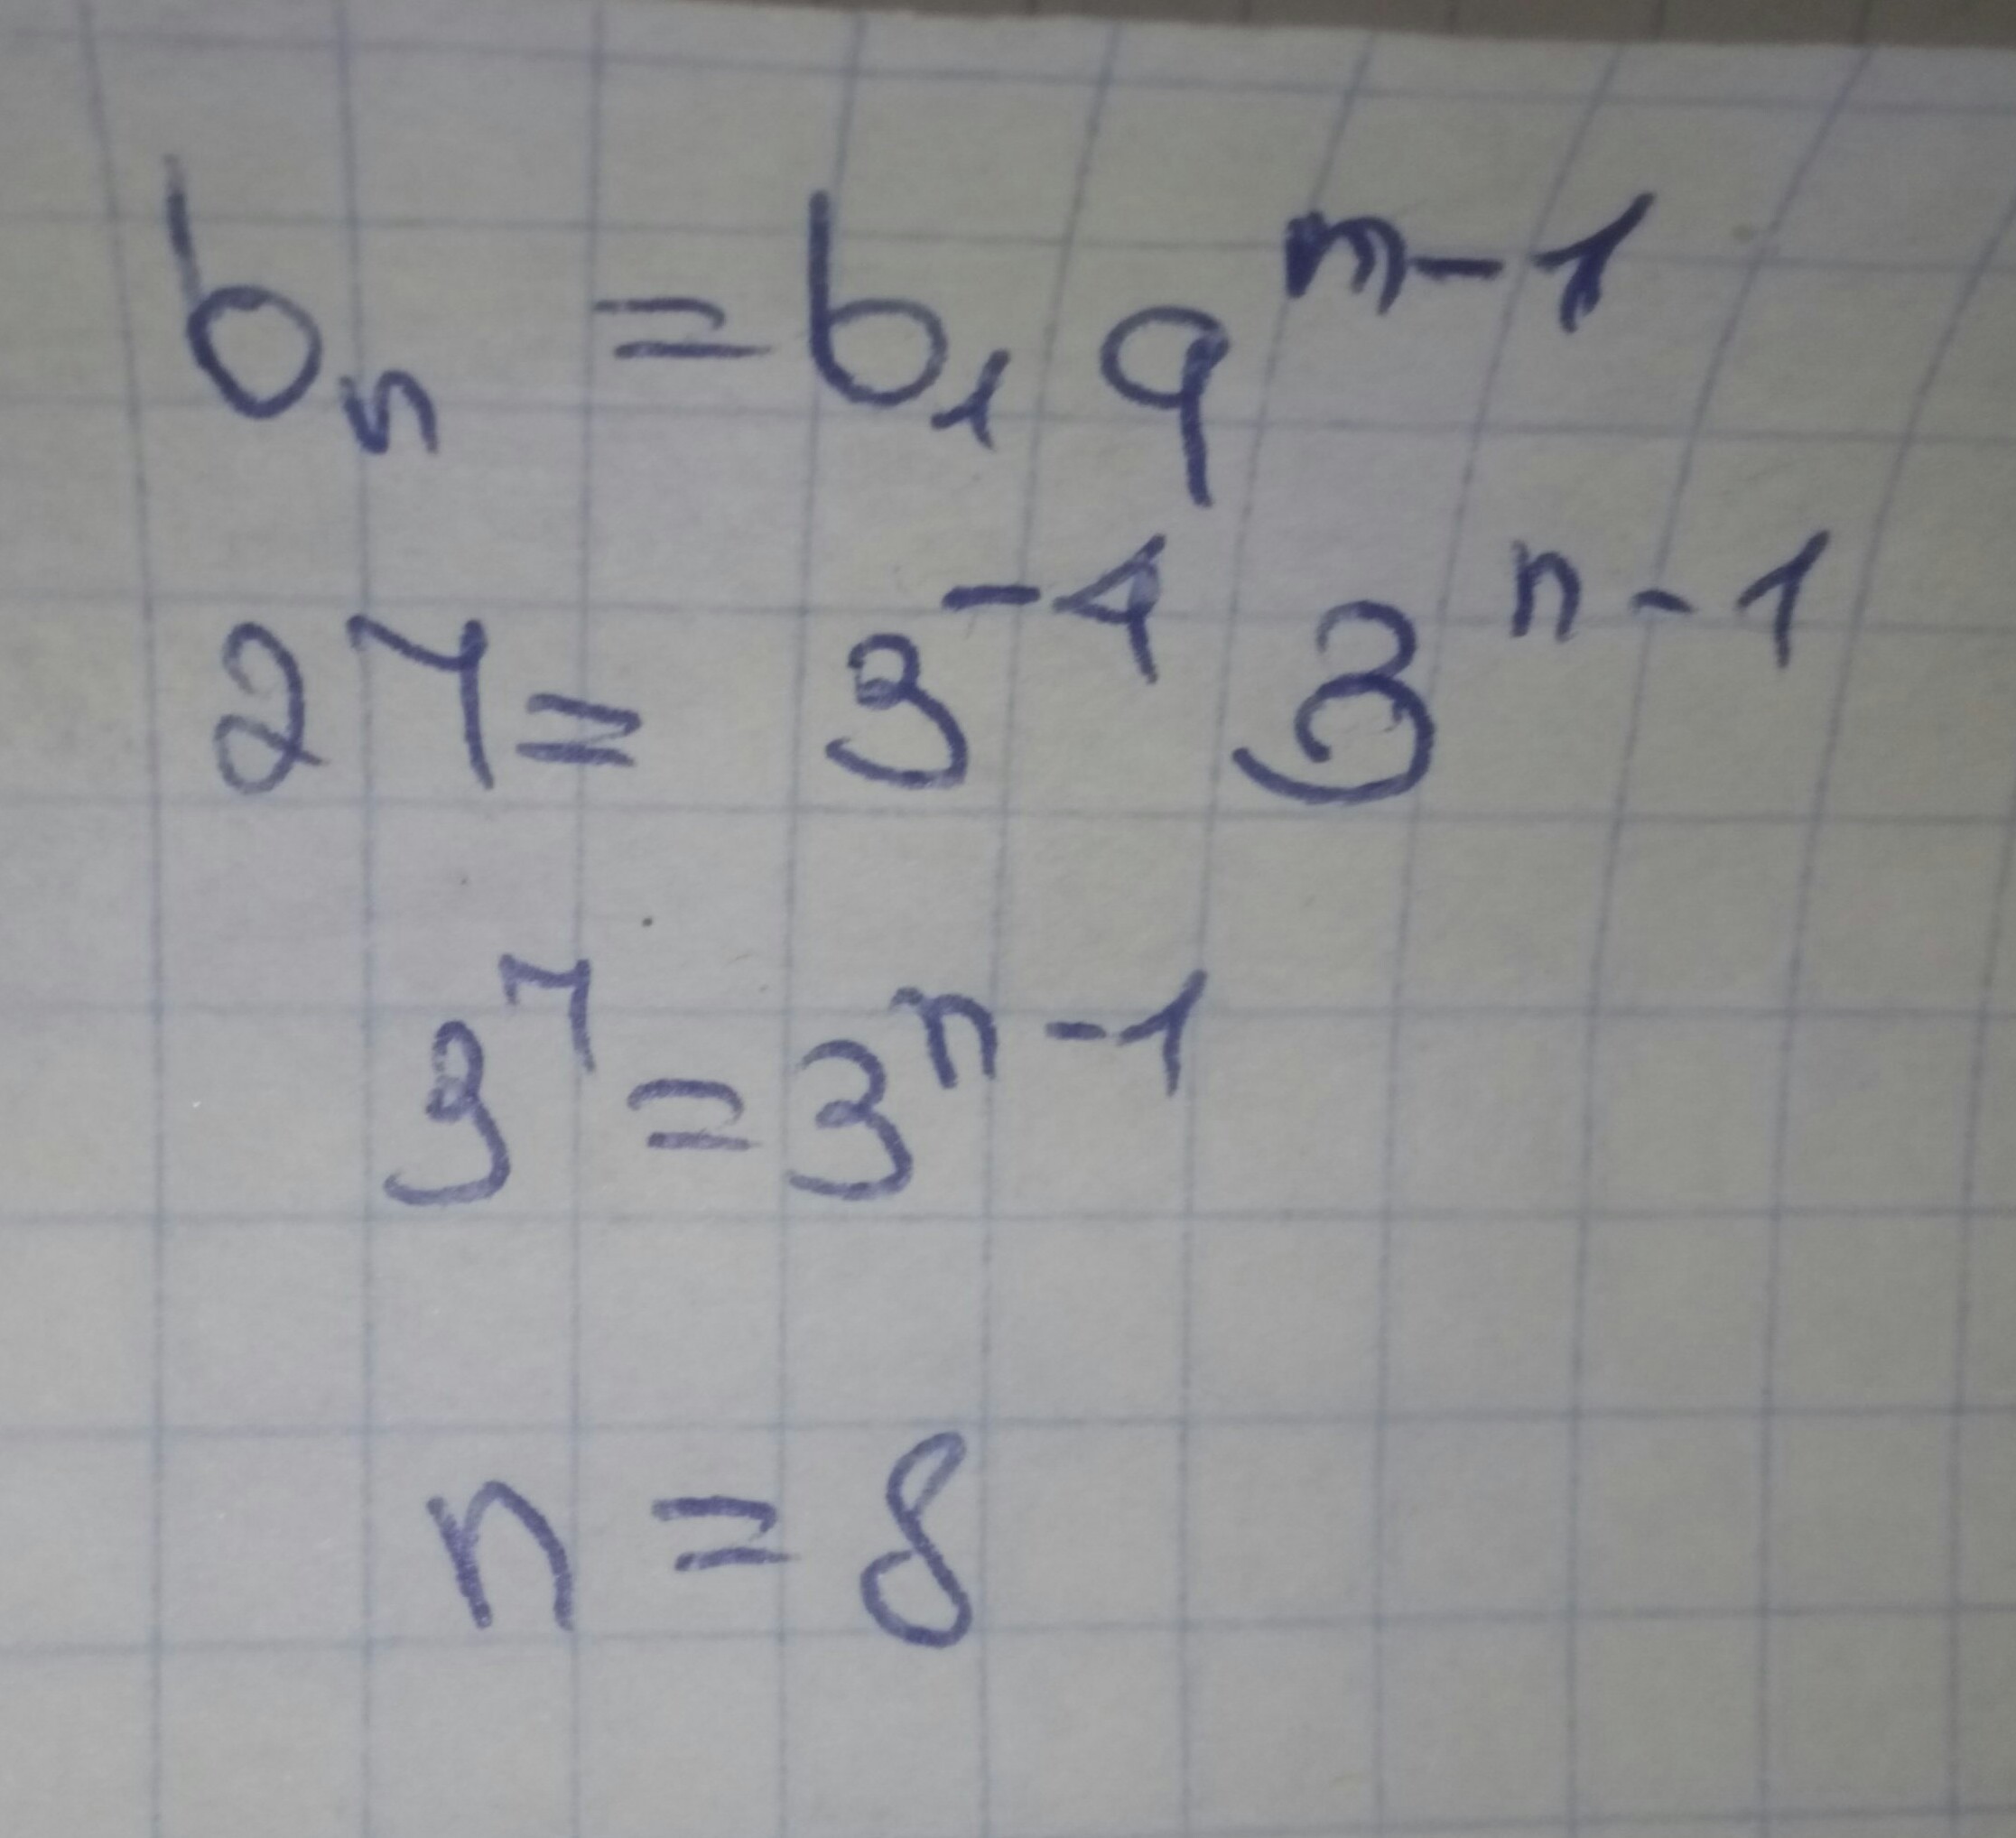 bₙ = b₁ qⁿ⁻¹
27 = 3⁻⁴ 3ⁿ⁻¹
3⁷ = 3ⁿ⁻¹
n = 8